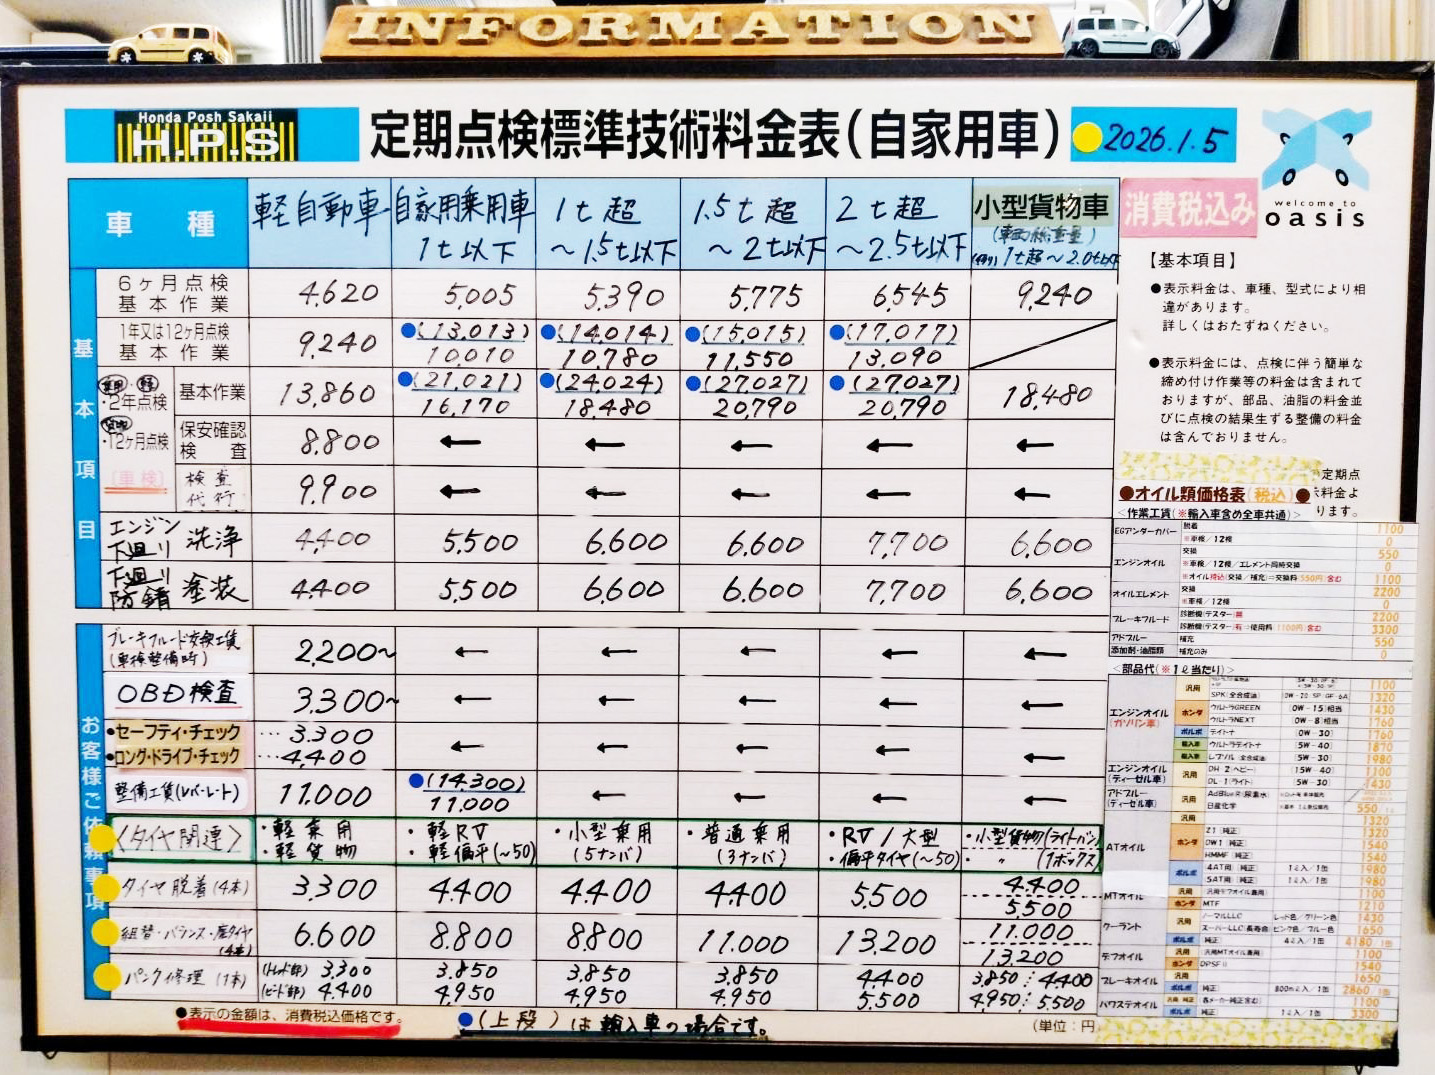 INFORMATION
Honda Posh Sakaii
H.P.S
定期点検標準技術料金表(自家用車)
2026.1.5
welcome to
oasis
消費税込み
車 種
軽自動車
自家用乗用車 1t以下
1t超 ~1.5t以下
1.5t超 ~2t以下
2t超 ~2.5t以下
小型貨物車 (車両総重量) 1t超~2.0t以下
基本項目
6ヶ月点検 基本作業 4,620 5,005 5,390 5,775 6545 9,240
1年又は12ヶ月点検 基本作業 9,240 (13,013) 10010 (14,014) 10,780 (15,015) 11,550 (17,017) 13,090
・2年点検
・12ヶ月点検
[車検]
基本作業 13,860 (21,021) 16,170 (24,024) 18,480 (27,027) 20,790 (27,027) 20,790 18,480
保安確認検査 8,800 ← ← ← ← ←
検査代行 9,900 ← ← ← ← ←
エンジン下廻り洗浄 4,400 5,500 6,600 6,600 7,700 6,600
下廻り防錆塗装 4,400 5,500 6,600 6,600 7,700 6,600
お客様ご依頼事項
ブレーキフルード交換工賃 (車検整備時) 2,200~ ← ← ← ← ←
OBD検査 3,300~ ← ← ← ← ←
●セーフティ・チェック …3,300 ← ← ← ← ←
●ロング・ドライブ・チェック …4,400
整備工賃(レバーレート) 11,000 (14,300) 11,000 ← ← ← ←
〈タイヤ関連〉
・軽乗用 ・軽貨物
・軽RV ・軽偏平(~50)
・小型乗用 (5ナンバ)
・普通乗用 (3ナンバ)
・RV/大型 ・偏平タイヤ(~50)
・小型貨物(ライトバン) ・〃(1ボックス)
タイヤ脱着(4本) 3,300 4,400 4,400 4,400 5,500 4,400 5,500
組替・バランス・廃タイヤ(4本) 6,600 8,800 8,800 11,000 13,200 11,000 13,200
パンク修理(1本) (トレッド部) 3,300 3,850 3,850 3,850 4,400 3,850 4,400
(ビード部) 4,400 4,950 4,950 4,950 5,500 4,950 5,500
●表示の金額は、消費税込価格です。
●(上段)は輸入車の場合です。
(単位:円)
【基本項目】
●表示料金は、車種、型式により相
違があります。
詳しくはおたずねください。
●表示料金には、点検に伴う簡単な
締め付け作業等の料金は含まれて
おりますが、部品、油脂の料金並
びに点検の結果生ずる整備の料金
は含んでおりません。
定期点
料金よ
ります。
●オイル類価格表(税込)●
<作業工賃(※輸入車含め全車共通)>
EGアンダーカバー 脱着 1100
※車検/12検 0
エンジンオイル 交換 550
※車検/12検/エレメント同時交換 0
※オイル持込(交換/補充)⇒交換料550円含む 1100
オイルエレメント 交換 2200
※車検/12検 0
ブレーキフルード 診断機(テスター)無 2200
診断機(テスター)有⇒使用料1100円含む 3300
アドブルー 補充 550
添加剤・油脂類 補充のみ 0
<部品代(※1ℓ当たり)>
エンジンオイル (ガソリン車)
汎用 1100
SPK(全合成油) 0W-20:SP・GF-6A 1320
ホンダ ウルトラGREEN 0W-15相当 1430
ウルトラNEXT 0W-8相当 1760
ボルボ (0W-30) 1760
輸入車 (5W-40) 1870
輸入車 レプソル 全合成油 (5W-30) 1980
エンジンオイル (ディーゼル車) 汎用 DH-2(ヘビー) (15W-40) 1100
DL-1(ライト) (5W-30) 1430
アドブルー (ディーゼル車) 汎用 AdBlue®(尿素水)
日産化学 550
ATオイル 汎用 1320
ホンダ Z1(純正) 1320
DW1(純正) 1540
HMMF(純正) 1540
ボルボ 4AT用(純正) 1ℓ入/1缶 1980
5AT用(純正) 1ℓ入/1缶 1980
MTオイル 汎用 1100
ホンダ MTF 1210
クーラント 汎用 ノーマルLLC レッド色/グリーン色 1430
スーパーLLC(長寿命) ピンク色/ブルー色 1650
ボルボ (純正) 4ℓ入/1缶 4180
デフオイル 汎用 汎用MTオイル兼用 1100
ホンダ DPSF-II 1540
ブレーキオイル 汎用 1650
ボルボ (純正) 800mℓ入/1缶 2860
パワステオイル 1100
ボルボ (純正) 1ℓ入/1缶 3300